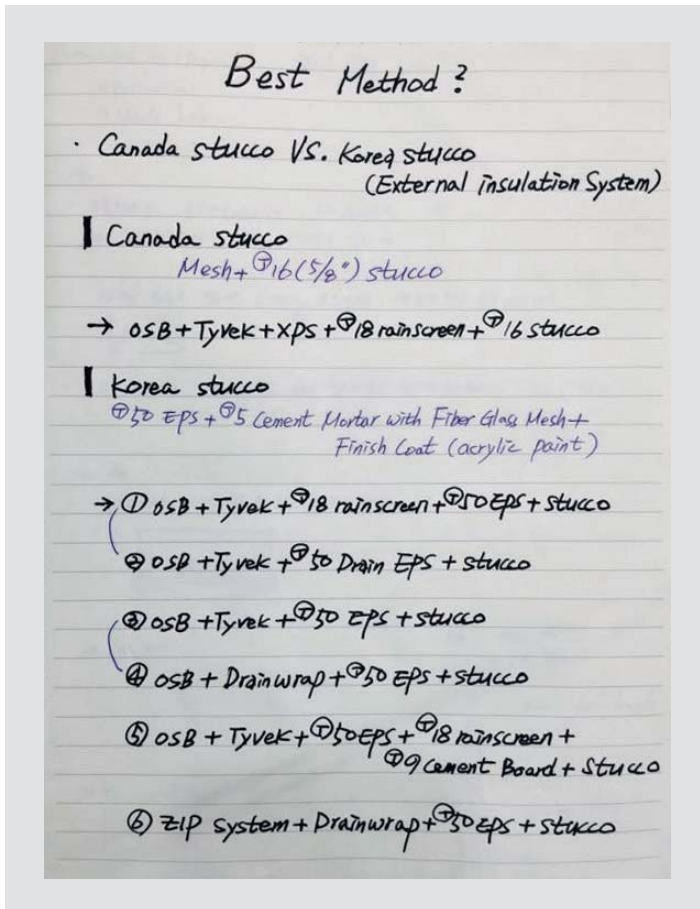 Best Method?
· Canada stucco VS. Korea stucco
(External insulation System)
Canada stucco
Mesh+Ⓣ16(5/8") stucco
→ OSB+Tyvek+XPS+Ⓣ18 rainscreen+Ⓣ16 stucco
Korea stucco
Ⓣ50 EPS+Ⓣ5 Cement Mortar with Fiber Glass Mesh+
Finish Coat (acrylic paint)
→ ① OSB+Tyvek+Ⓣ18 rainscreen+Ⓣ50 EPS+stucco
② OSB+Tyvek+Ⓣ50 Drain EPS+stucco
③ OSB+Tyvek+Ⓣ50 EPS+stucco
④ OSB+Drainwrap+Ⓣ50 EPS+stucco
⑤ OSB+Tyvek+Ⓣ50 EPS+Ⓣ18 rainscreen+
Ⓣ9 Cement Board+Stucco
⑥ ZIP system+Drainwrap+Ⓣ50 EPS+stucco